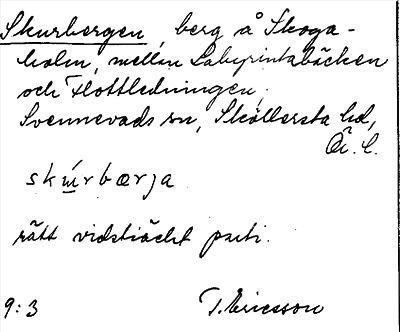 Skurbergen, berg å Skoga-
holm, mellan Labyrintabäcken
och Flottledningen.
Svennevads sn, Sköllersta hd,
Ö. L.
skúrbærja
rätt vidsträckt parti.
9:3 T. Ericsson